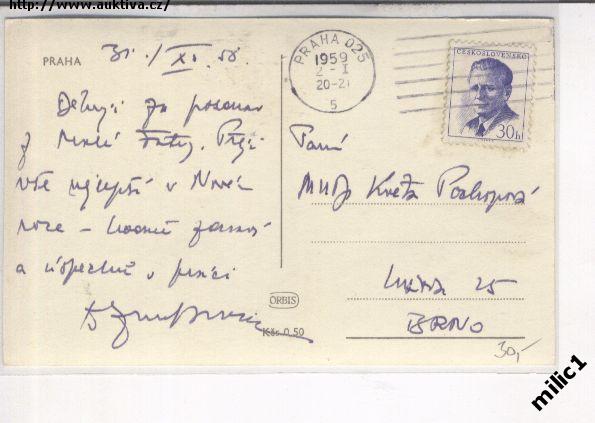 http://www.auktiva.cz/
PRAHA
31. / XII. 58.
Děkuji za pozdrav
z Přeji
vše nejlepší v Novém
roce – hodně zdraví
a úspěchů v práci
PRAHA 025
1959
2 I
20-21
5
ČESKOSLOVENSKO
30h
Paní
MUDr Květa
25
BRNO
ORBIS
Kčs 0,50
30,-
milic1